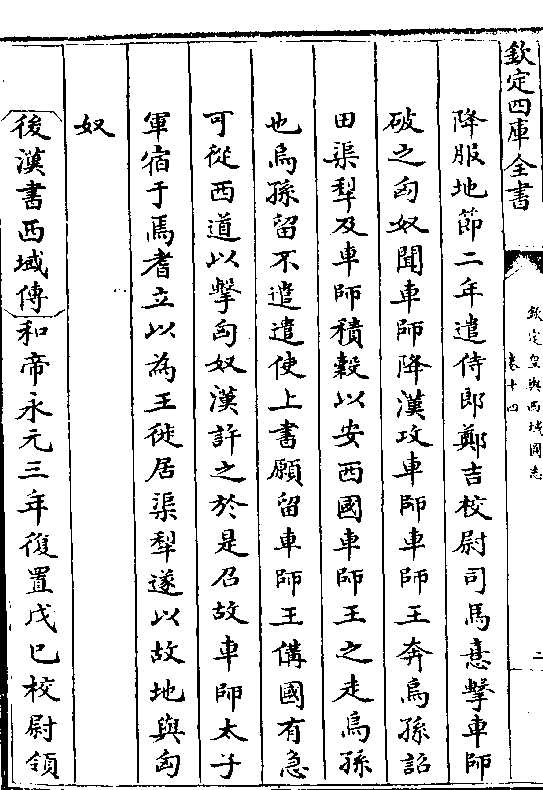 欽定四庫全書
欽定皇輿西域圖志
卷十四
二
降服地節二年遣侍郎鄭吉校尉司馬憙擊車師
破之匈奴聞車師降漢攻車師車師王奔烏孫詔
田渠犁及車師積穀以安西國車師王之走烏孫
也烏孫留不遣遣使上書願留車師王備國有急
可從西道以擊匈奴漢許之於是召故車師太子
軍宿于焉耆立以為王徙居渠犁遂以故地與匈
奴
後漢書西域傳和帝永元三年復置戊已校尉領